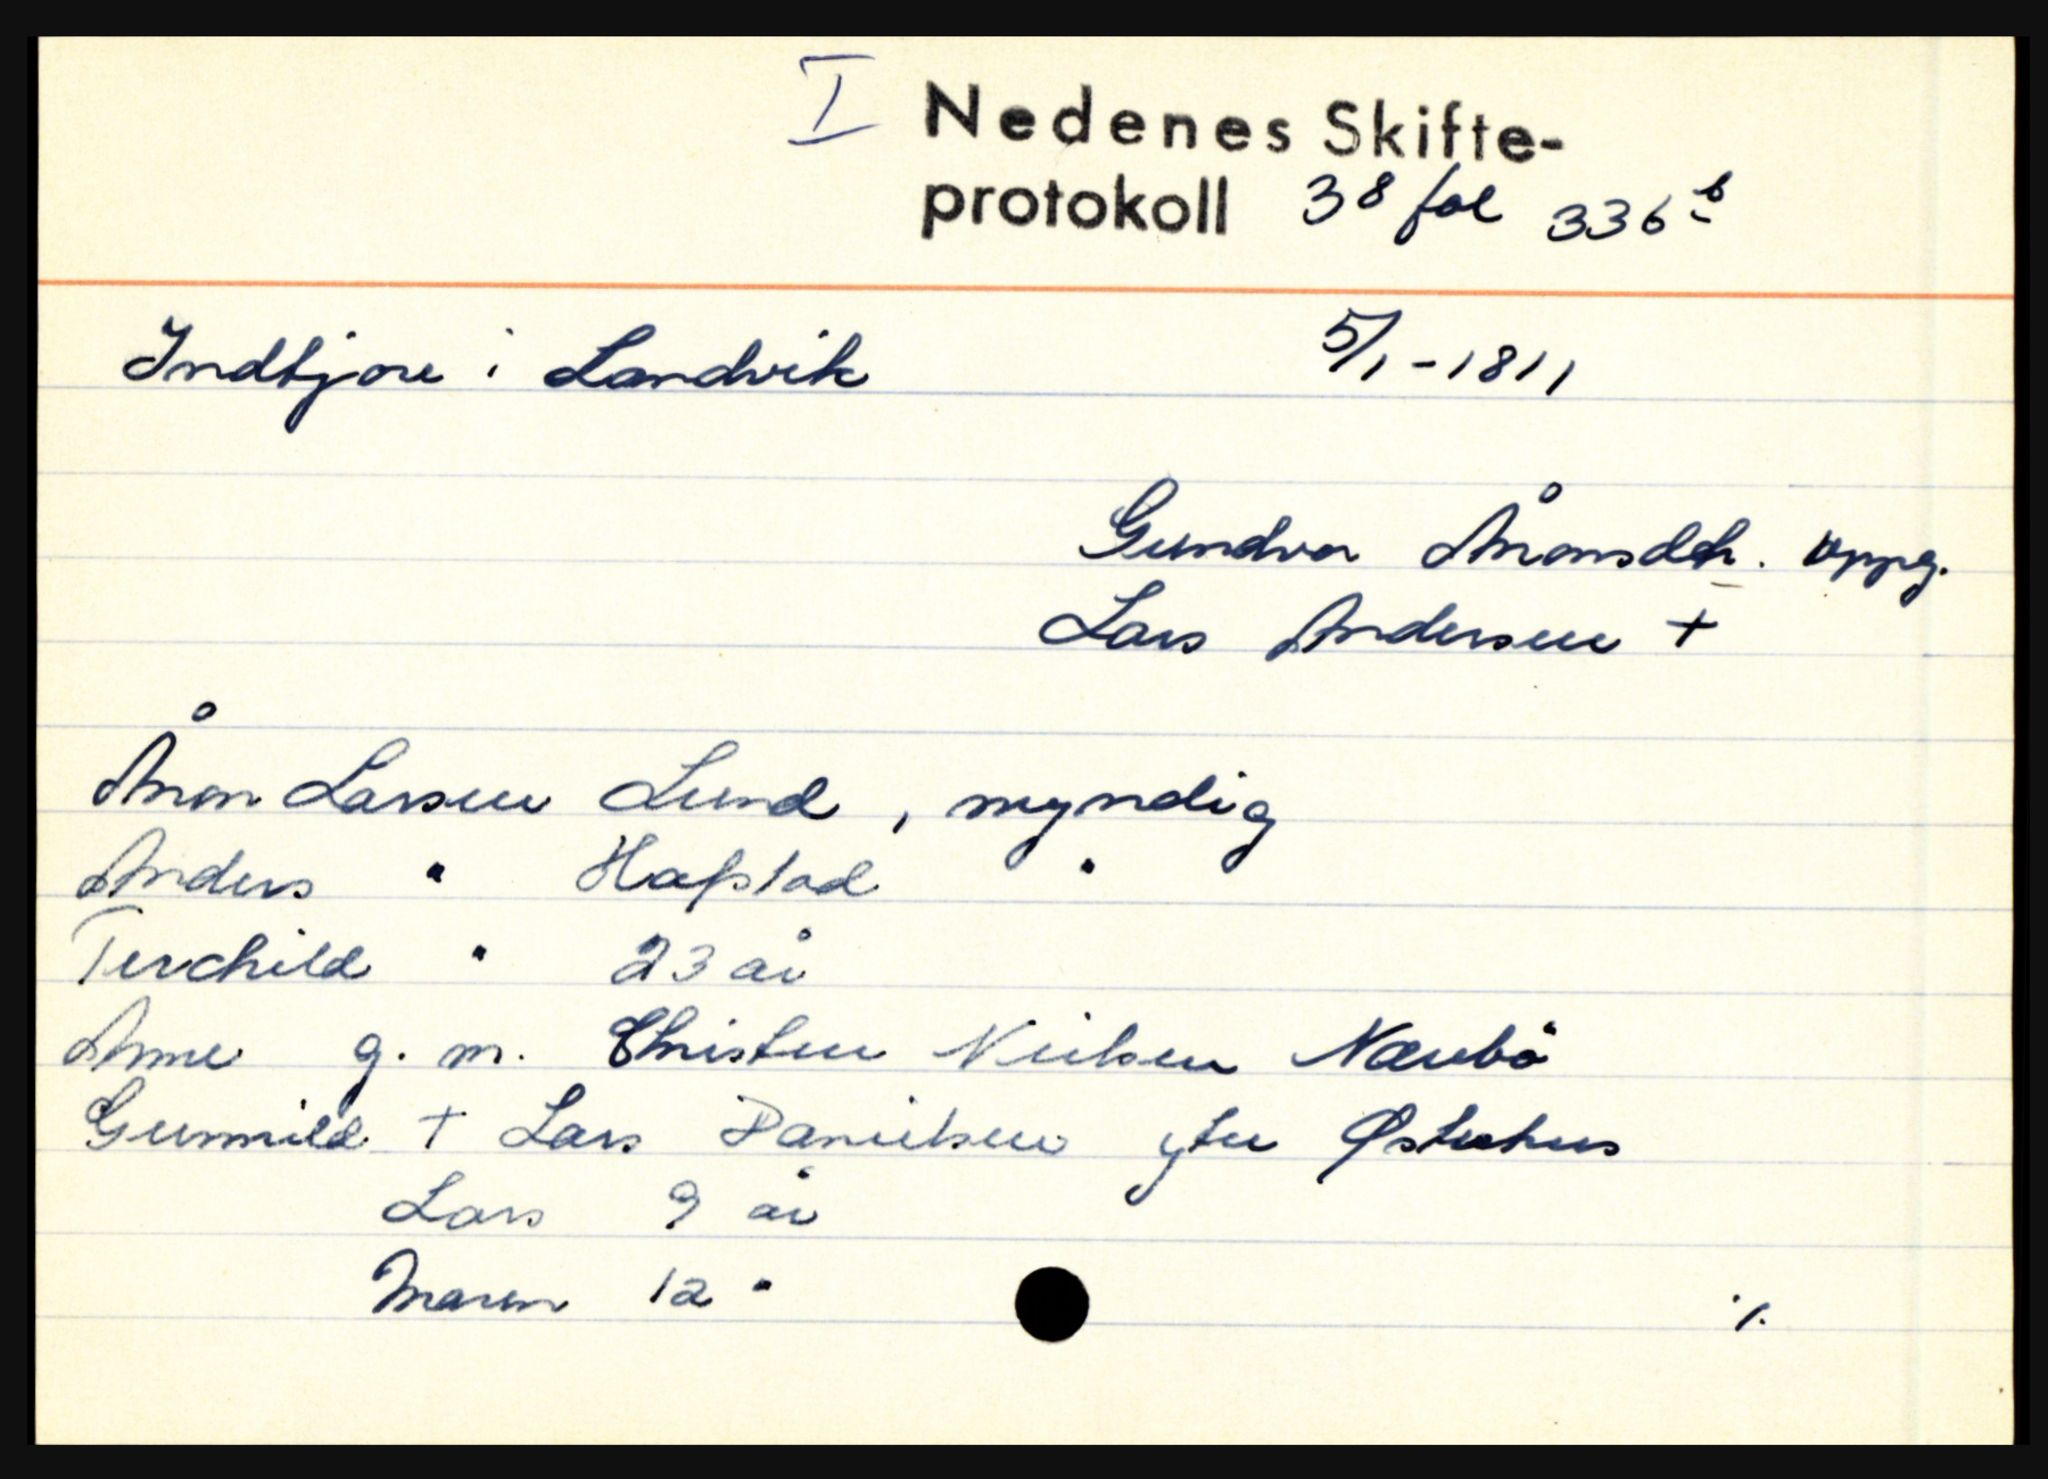 I Nedenes Skifte-
protokoll 38 fol 336 b
Indbjore i Landvik 5/1-1811
Gundvor Ånonsdth. oppg.
Lars Andersen +
Ånon Larsen Lund, myndig
Anders " Hafstad "
Terchild " 23 år
Anne g. m. Christen Neilsen Nærebö
Gunnild + Lars Danielsen ytre Østerhus
Lars 9 år
Maren 12 "
./.